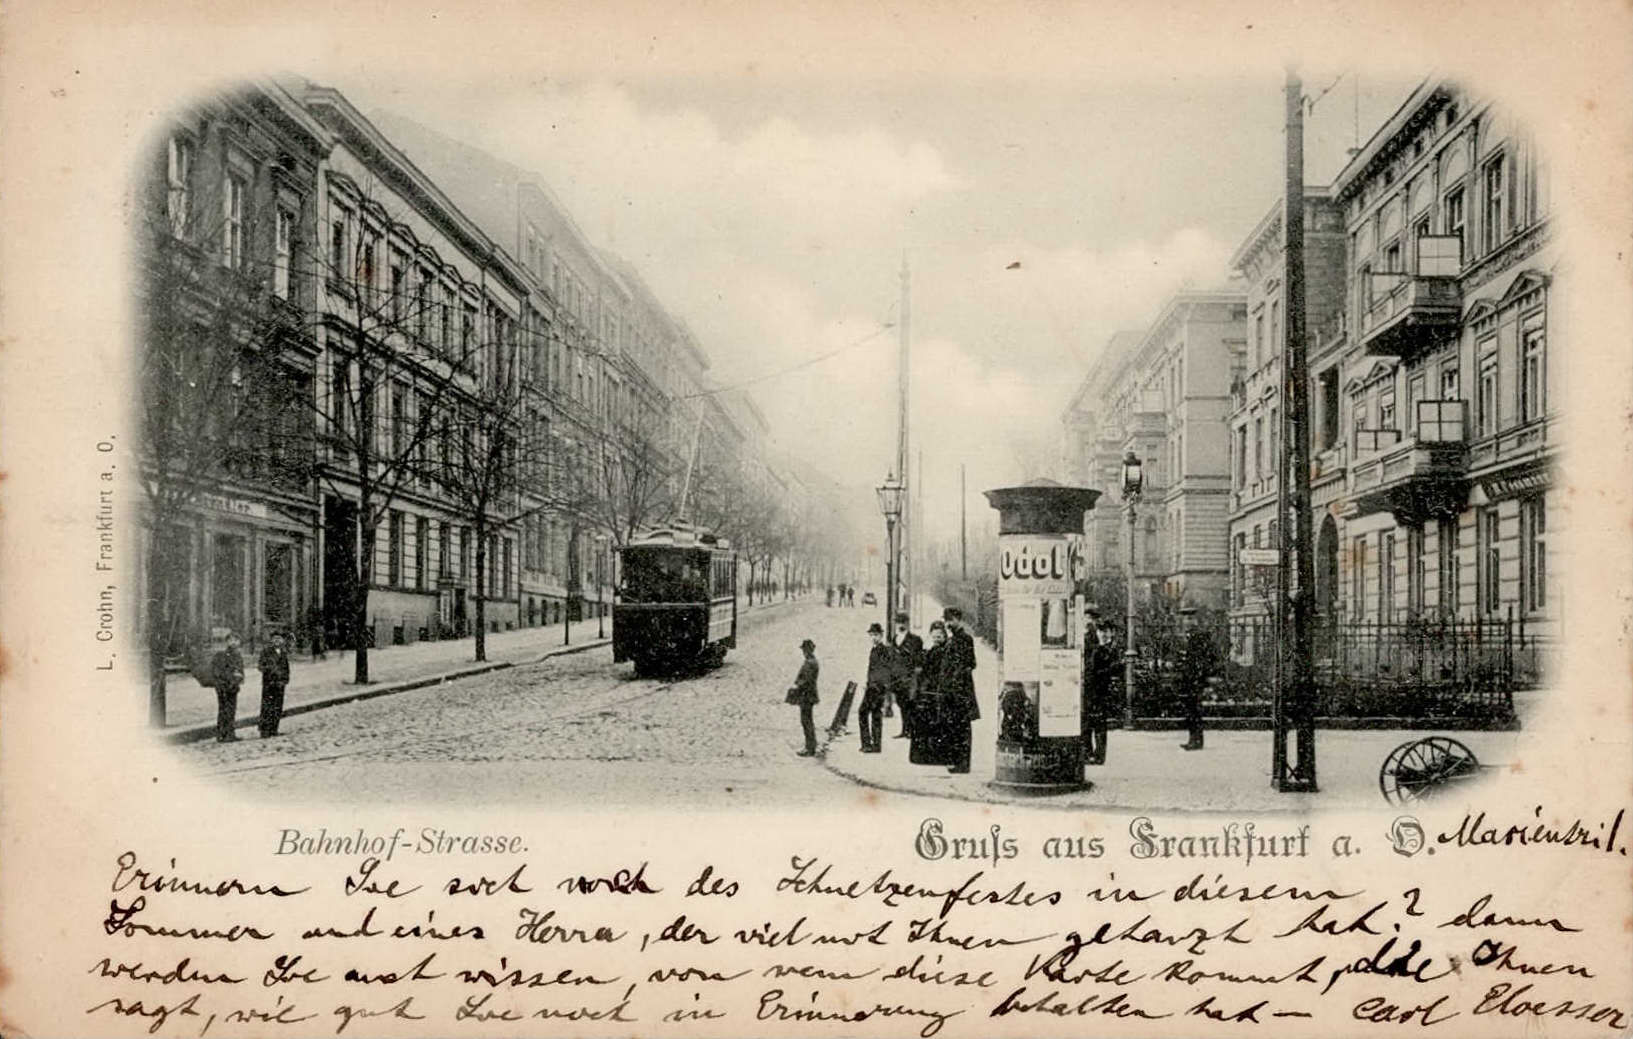 L. Crohn, Frankfurt a. O.
Odol
Bahnhof-Strasse.
Gruſs aus Frankfurt a. O.
Erinnern Sie sich noch des Schuetzenfestes in diesem
Sommer und eines Herrn, der viel mit Ihnen getanzt hat? dann
werden Sie auch wissen, von wem diese Karte kommt, die Ihnen
sagt, wie gut Sie noch in Erinnerung behalten hat — Carl Eloesser